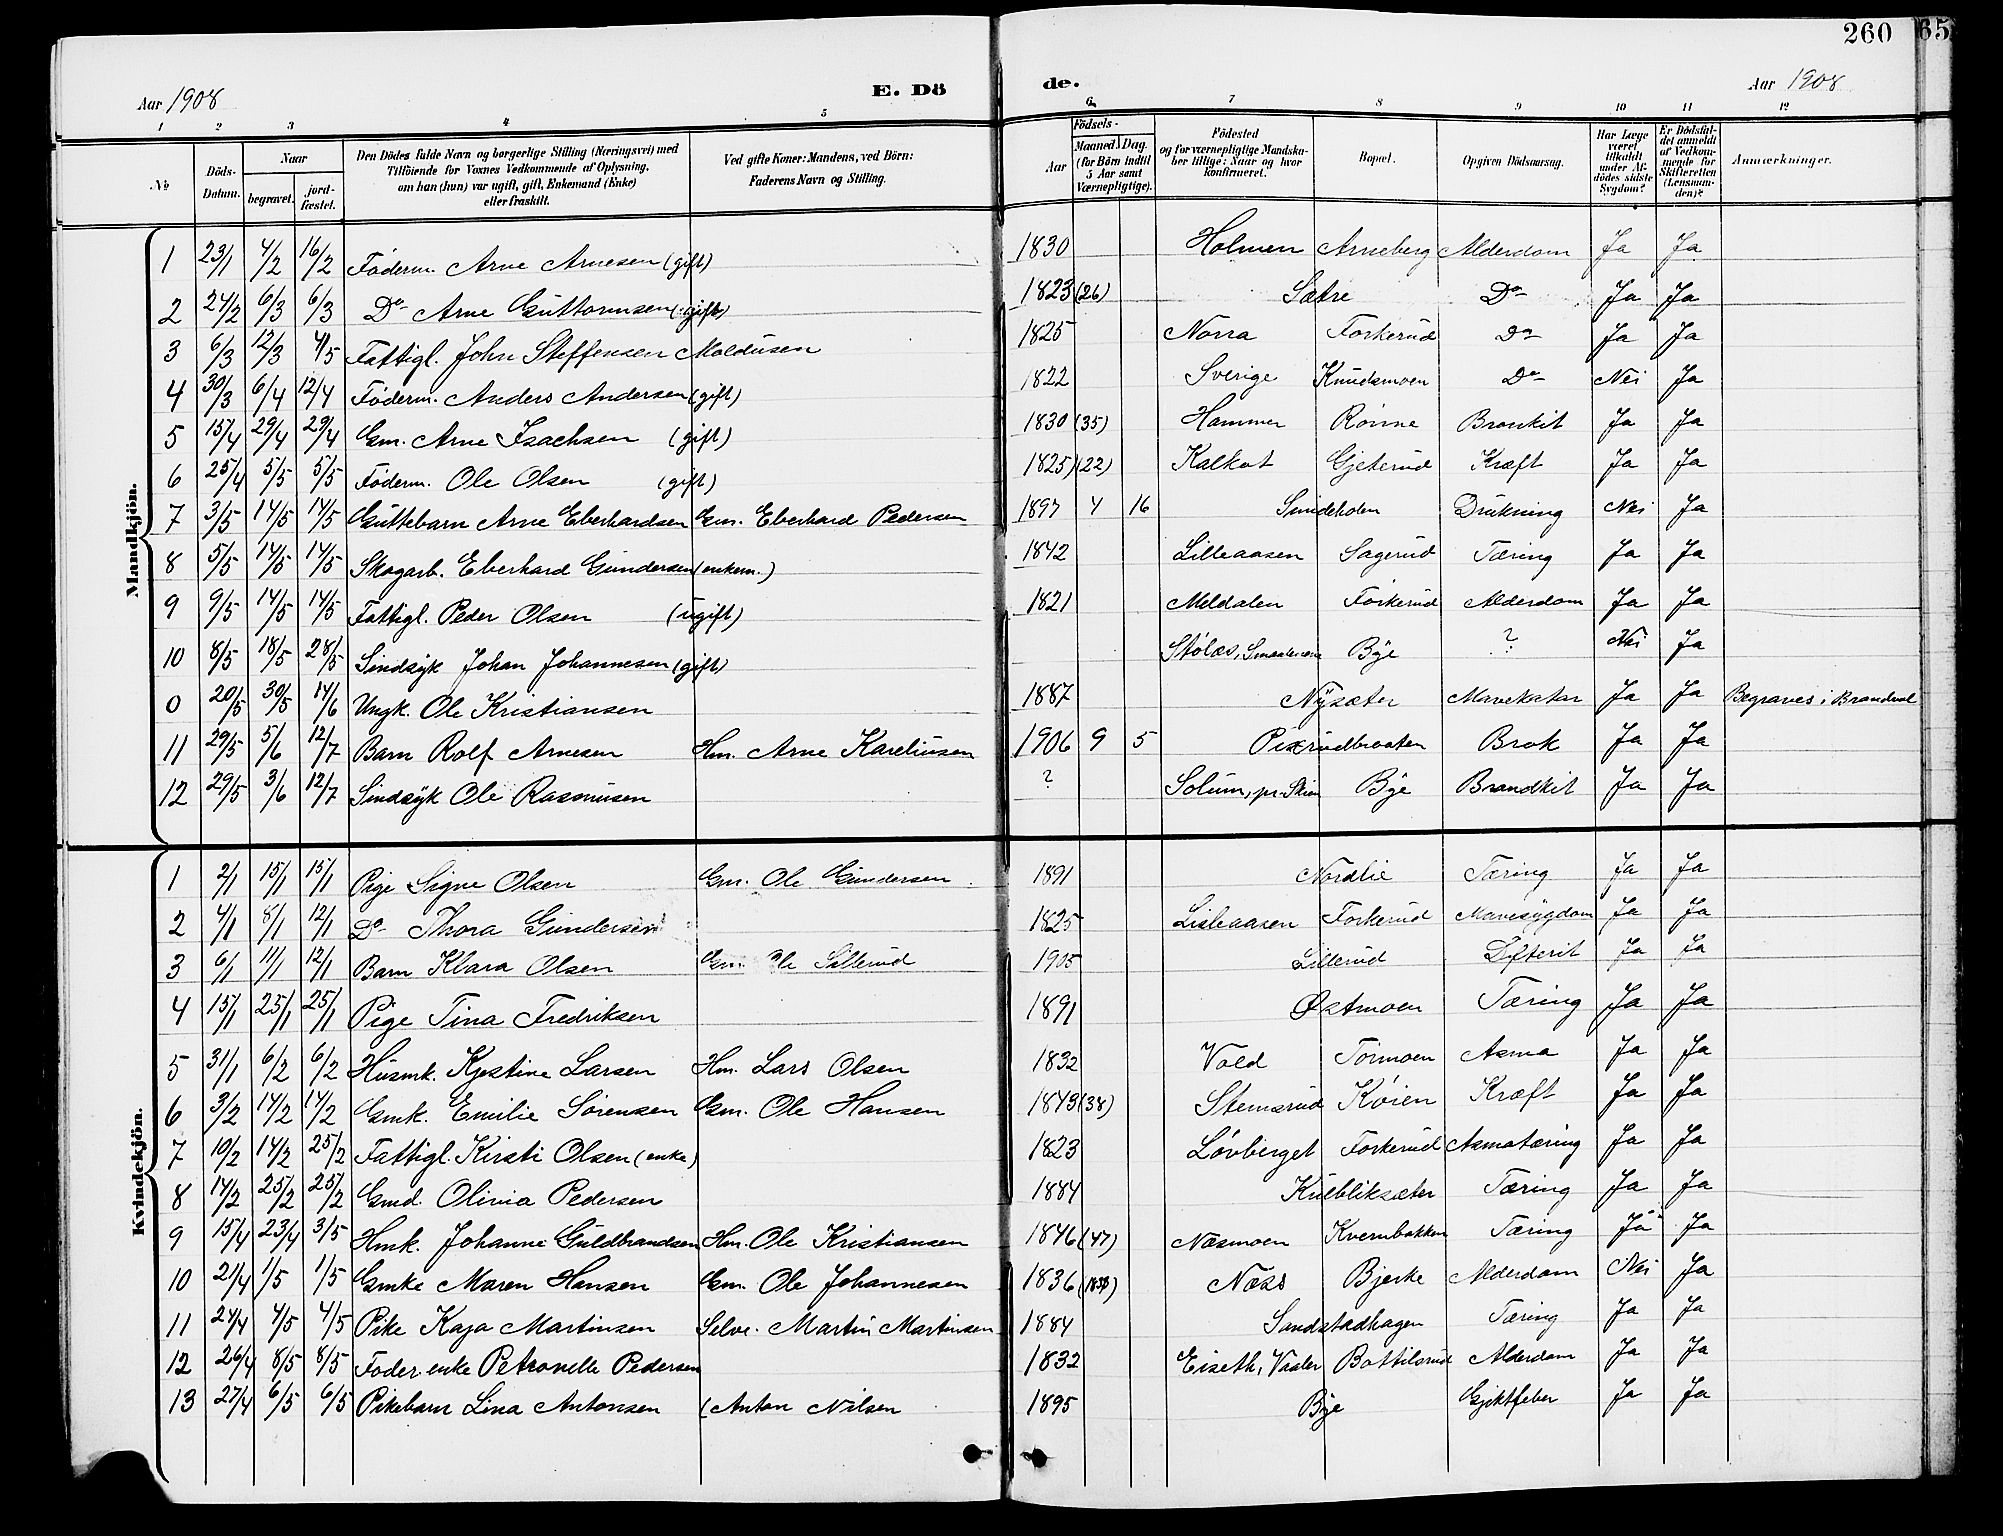 260 65
Aar 1908 E. Dö de. Aar 1908
1 2 3 4 5 6 7 8 9 10 11 12
No Döds-Datum. Naar begravet. jord-fæstet. Den Dödes fulde Navn og borgerlige Stilling (Næringsvei) med Tilföiende for Voxnes Vedkommende af Oplysning, om han (hun) var ugift, gift, Enkemand (Enke) eller fraskilt. Ved gifte Koner: Mandens, ved Börn: Faderens Navn og Stilling. Födsels- Aar Maaned Dag. (for Börn indtil 5 Aar samt Værnepligtige). Födested og for værnepligtige Mandskaber tillige: Naar og hvor konfirmeret. Bopæl. Opgiven Dödsaarsag. Har Læge været tilkaldt under Afdödes sidste Sygdom? Er Dödsfaldet anmeldt af Vedkommende for Skifteretten (Lensmanden)? Anmærkninger.
Mandkjön.
1 23/1 4/2 16/2 Föderm. Arne Arnesen (gift) 1830 Holmen Arneberg Alderdom Ja Ja
2 24/2 6/3 6/3 Do Arne Guttormsen (gift) 1823 (26) Sætre Do Ja Ja
3 6/3 12/3 4/5 Fattigl. John Steffensen Moldusen 1825 Norra Forkerud Do Ja Ja
4 30/3 6/4 12/4 Föderm. Anders Andersen (gift) 1822 Sverige Knudsmoen Do Nei Ja
5 15/4 29/4 29/4 Gm. Arne Isachsen (gift) 1830 (35) Hammer Rönne Bronkit Ja Ja
6 25/4 5/5 5/5 Föderm. Ole Olsen (gift) 1825 (22) Kalkot Gjeterud Kræft Ja Ja
7 3/5 14/5 14/5 Guttebarn Arne Eberhardsen Gm. Eberhard Pedersen 1897 4 16 Sundeholen Drukning Nei Ja
8 5/5 14/5 14/5 Skogarb. Eberhard Gundersen (enkem.) 1842 Lilleaasen Sagerud Tæring Ja Ja
9 9/5 14/5 14/5 Fattigl. Peder Olsen (ugift) 1821 Meldalen Forkerud Alderdom Ja Ja
10 8/5 18/5 28/5 Sindsyk Johan Johannesen (gift) Stölås, Bye ? Nei Ja
0 20/5 30/5 14/6 Ungk. Ole Kristiansen 1887 Nysæter Mavekatar Ja Ja Begraves i Brandval
11 29/5 5/6 12/7 Barn Rolf Arnesen Hm. Arne Kareliusen 1906 9 5 Pixrudbraaten Brok Ja Ja
12 29/5 3/6 12/7 Sindsyk Ole Rasmusen ? Solum, pr. Skien Bye Brondkit Ja Ja
Kvindekjön.
1 2/1 15/1 15/1 Pige Signe Olsen Gm. Ole Gundersen 1891 Nordlie Tæring Ja Ja
2 4/1 8/1 12/1 Do Thora Gundersen 1825 Lisleaasen Forkerud Mavesygdom Ja Ja
3 6/1 11/1 12/1 Barn Klara Olsen Gm. Ole Lillerud 1905 Lillerud Difterit Ja Ja
4 15/1 25/1 25/1 Pige Tina Fredriksen 1891 Østmoen Tæring Ja Ja
5 31/1 6/2 6/2 Husmk. Kjestine Larsen Hm. Lars Olsen 1832 Vold Tormoen Asma Ja Ja
6 3/2 14/2 14/2 Gmk. Emilie Sörensen Gm. Ole Hansen 1843 (38) Stemsrud Köien Kræft Ja Ja
7 10/2 14/2 25/2 Fattigl. Kirsti Olsen (enke) 1823 Lövberget Forkerud Asmatæring Ja Ja
8 14/2 25/2 25/2 Gmd. Olivia Pedersen 1884 Kulbliksæter Tæring Ja Ja
9 15/4 23/4 3/5 Hmk. Johanne Guldbrandsen Hm. Ole Kristiansen 1846 (47) Næsmoen Kvernbakken Tæring Ja Ja
10 21/4 1/5 1/5 Gmke Maren Hansen Gm. Ole Johannesen 1836 Næss Bjerke Alderdom Nei Ja
11 24/4 4/5 4/5 Pike Kaja Martinsen Selve. Martin Martinsen 1884 Sandstadhagen Tæring Ja Ja
12 26/4 8/5 8/5 Foder.enke Petronelle Pedersen 1832 Eiseth, Vaaler Bottilsrud Alderdom Ja Ja
13 27/4 6/5 6/5 Pikebarn Lina Antonsen (Anton Nilsen 1895 Bye Gjiktfeber Ja Ja